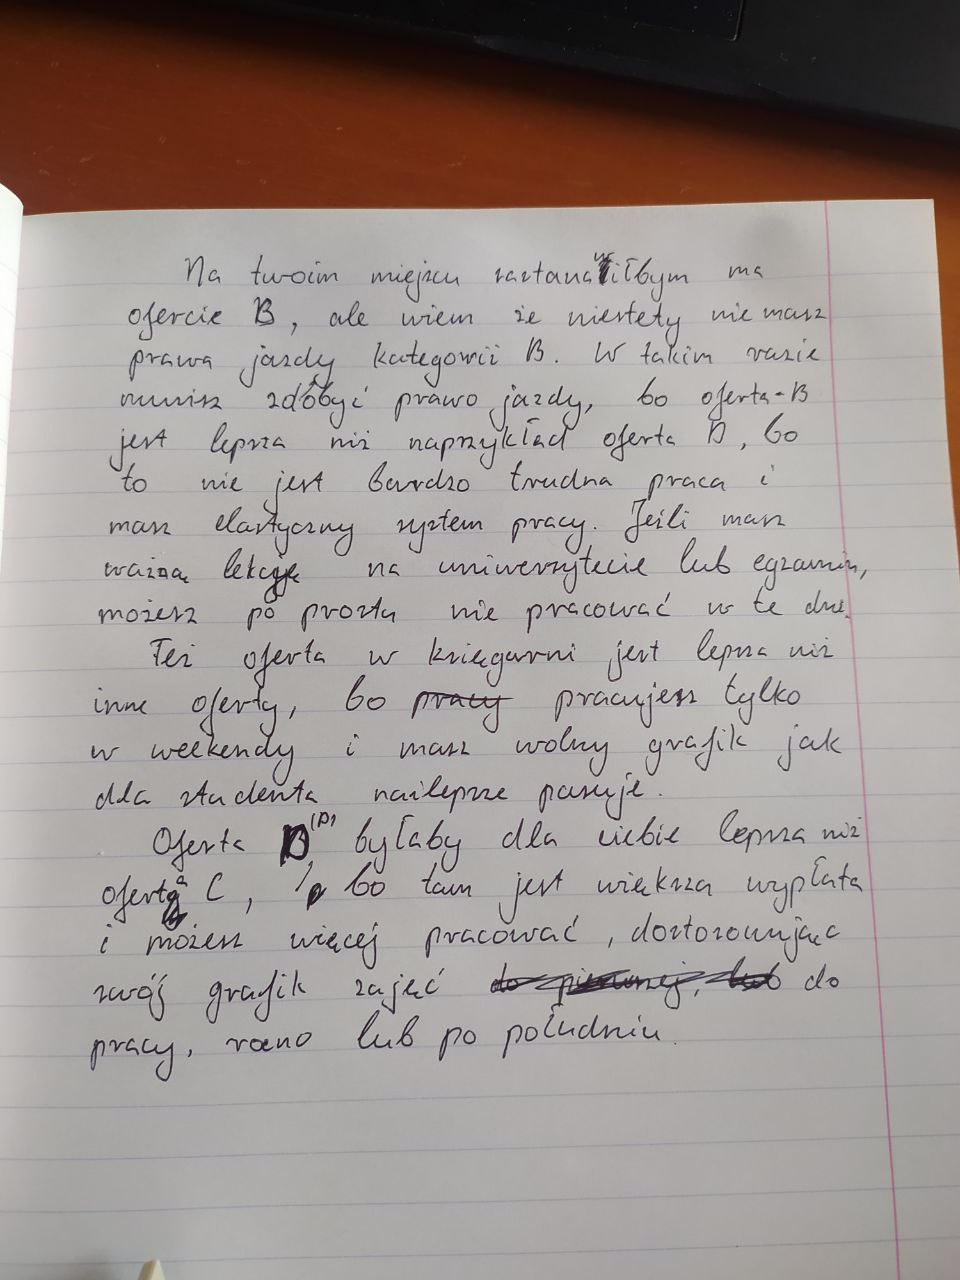 Na twoim miejscu zastanawiiłbym na
ofercie B, ale wiem że niestety nie masz
prawa jazdy kategorii B. W takim razie
musisz zdobyć prawo jazdy, bo oferta B
jest lepsza niż naprzykład oferta D, bo
to nie jest bardzo trudna praca i
masz elastyczny system pracy. Jeśli masz
ważną lekcję na uniwerzytecie lub egzamin,
możesz po prostu nie pracować w te dni.
Też oferta w księgarni jest lepsza niż
inne oferty, bo pracujesz tylko
w weekendy i masz wolny grafik jak
dla studenta najlepsze pasuje.
Oferta (D) byłaby dla ciebie lepsza niż
oferta C, bo tam jest większa wypłata
i możesz więcej pracować, dostosowując
swój grafik zajęć do
pracy, rano lub po południu.